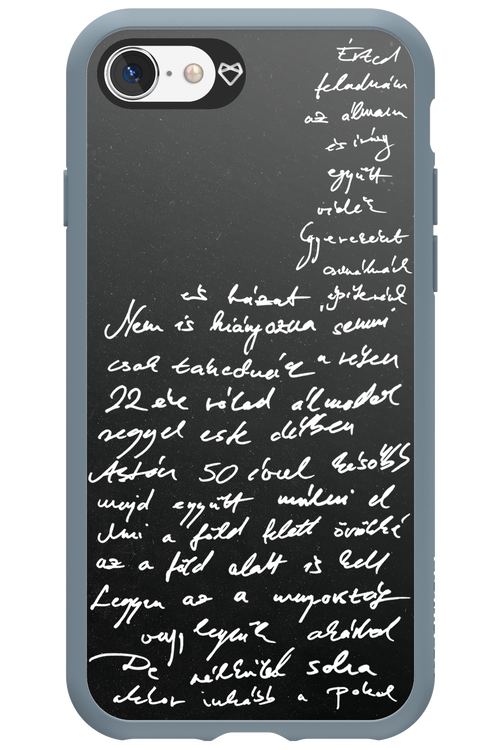 Érted
feladnám
az álmaim
és irány
együtt
vidék
Gyerekeink
csinálnánk
és házat építenénk
Nem is hiányozna semmi
csak takednék a réten
22 éve rólad álmodok
reggel este délben
Aztán 50 évvel később
majd együtt múlni el
Ami a föld felett örökké
az a föld alatt is kell
Legyen az a mennyország
vagy legyünk akárhol
De nélküled soha
akkor inkább a pokol